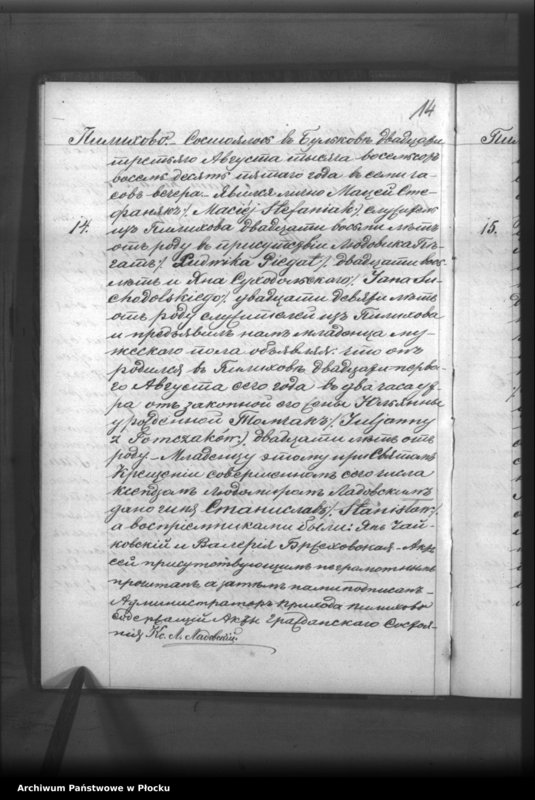 14
Пилихово. Состоялось въ Бульковѣ двадцать
третьяго Августа тысяча восемсотъ
восемь десятъ пятаго года въ семь ча-
совъ вечера. Явился лично Мацей Сте-
фанякъ /Maciej Stefaniak/, служитель
14.
изъ Пилихова двадцати восьми лѣтъ
отъ роду въ присутствіи Людовика Пѣ-
гатъ /Ludwika Piegat/, двадцати вось.
лѣтъ и Яна Суходольскаго /Jana Su-
chodolskiego/ двадцати девяти лѣтъ
отъ роду служителей изъ Пилихова
и предъявилъ намъ младенца му-
жескаго пола объявляя: что онъ
родился въ Пилиховѣ двадцать перва-
го Августа сего года въ два часа ут-
ра отъ законной его жены Юльянны
урожденной Томчакъ /Juljanny
z Tomczaków/, двадцати лѣтъ отъ
роду. Младенцу этому при Святомъ
Крещеніи совершенномъ сего числа
ксендзомъ Людомиромъ Ладовскимъ
дано имя Станиславъ /Stanisław/,
а воспріемниками были: Янъ Чай-
ковскій и Валерія Бржеховская. Актъ
сей присутствующимъ неграмотнымъ
прочитанъ, а затѣмъ нами подписанъ.
Администраторъ прихода Пилихово
Содержащій Акты Гражданскаго Состоя-
нія Кс. Л. Ладовскій.
Пил
15.
Archiwum Państwowe w Płocku